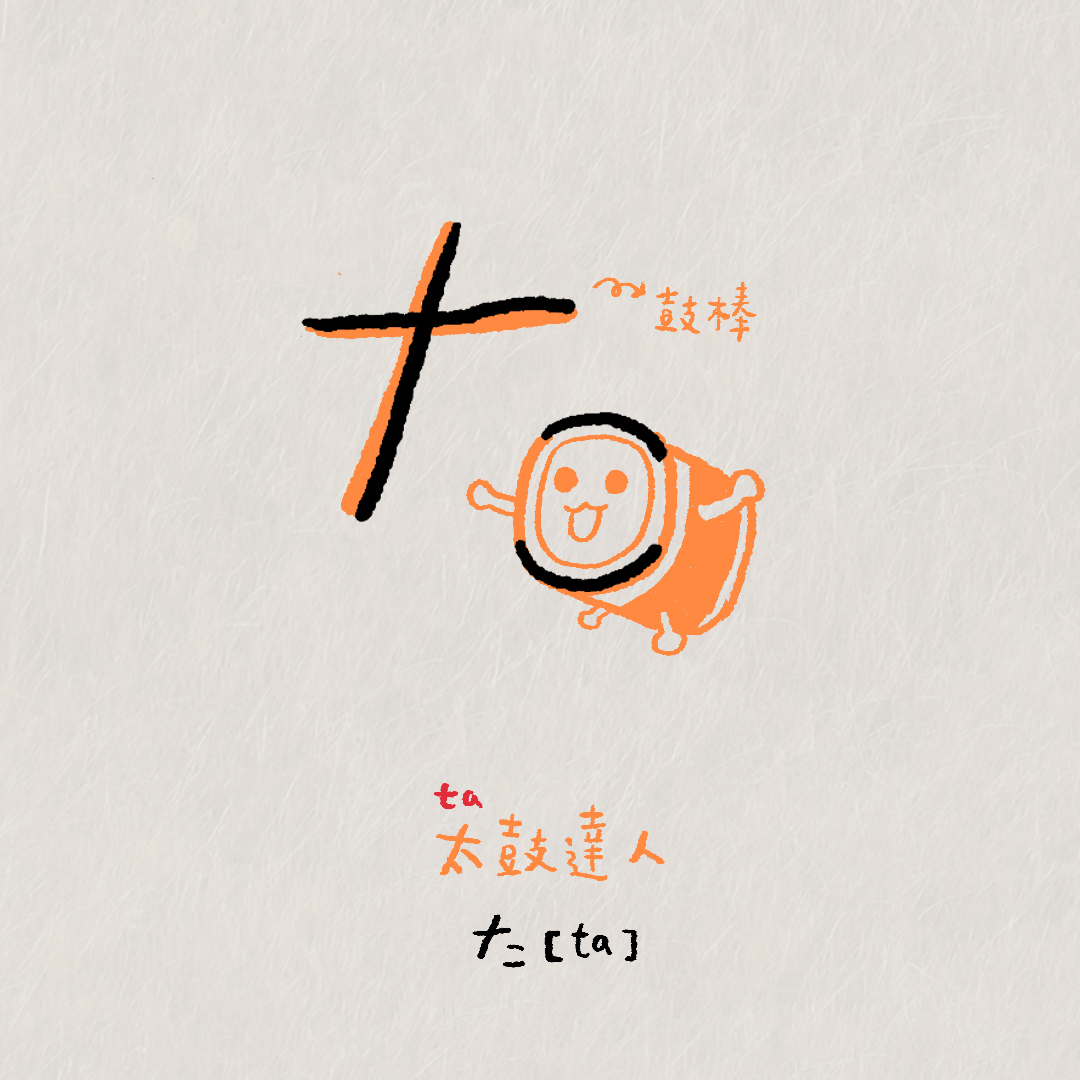 た
鼓棒
ta
太鼓達人
た [ta]